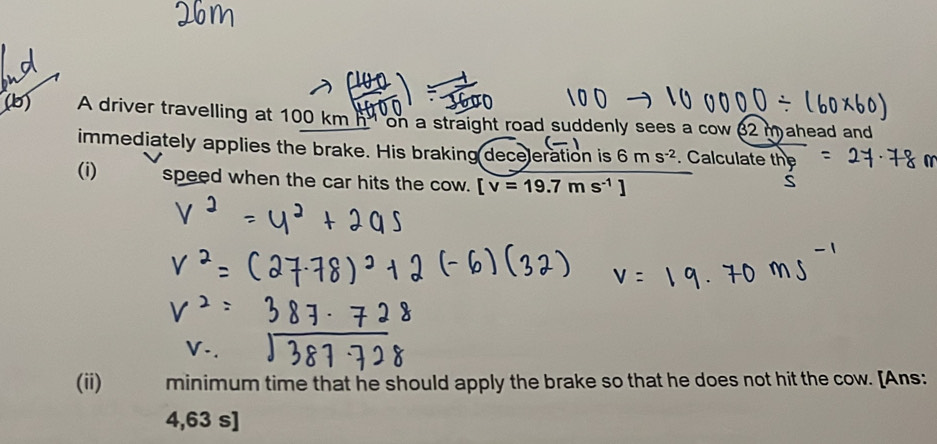 26m
(b)
→ (100/1/3600) = 1/3600
100 → 100 000 ÷ (60×60)
A driver travelling at 100 km h⁻¹ on a straight road suddenly sees a cow 32 m ahead and
(-)
immediately applies the brake. His braking deceleration is 6 m s⁻². Calculate the = 27.78 m
s
(i) speed when the car hits the cow. [ v = 19.7 m s⁻¹ ]
v² = u² + 2as
v² = (27.78)² + 2 (-6)(32) v = 19.70 ms⁻¹
v² = 387.728
v = √387.728
(ii) minimum time that he should apply the brake so that he does not hit the cow. [Ans:
4,63 s]